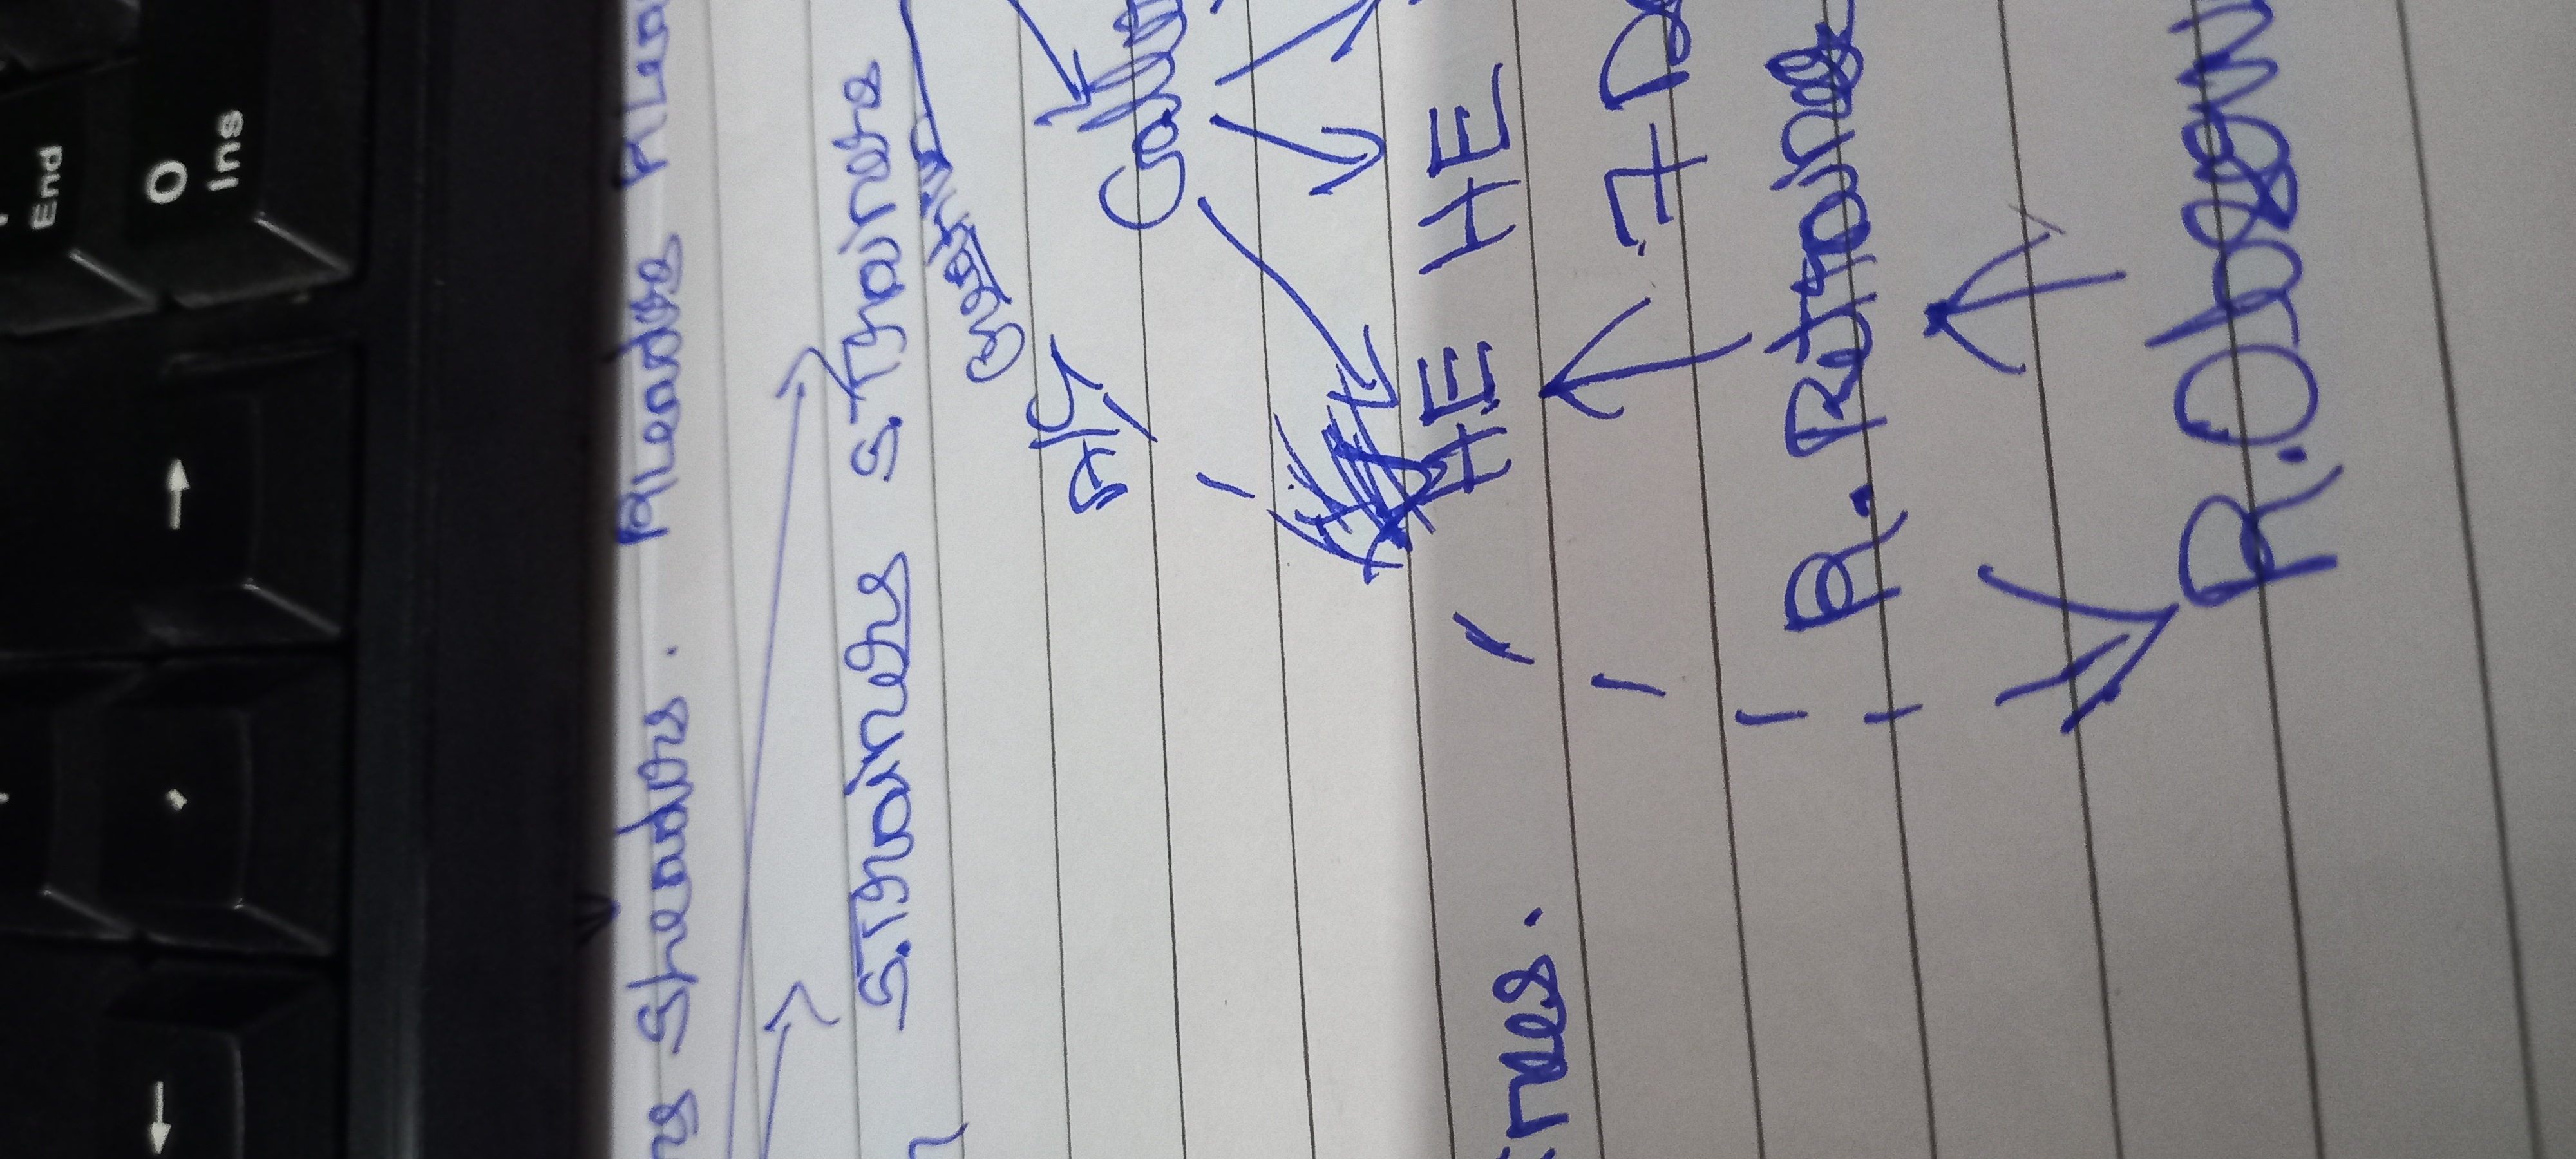 End
← →
0
Ins
rs Sleaders. RLeaders RLea
S.Trainers S.Trainers
A/C Creation
Calle
H.E HE
inees.
7 Da
R. Retrainer
R.Obser